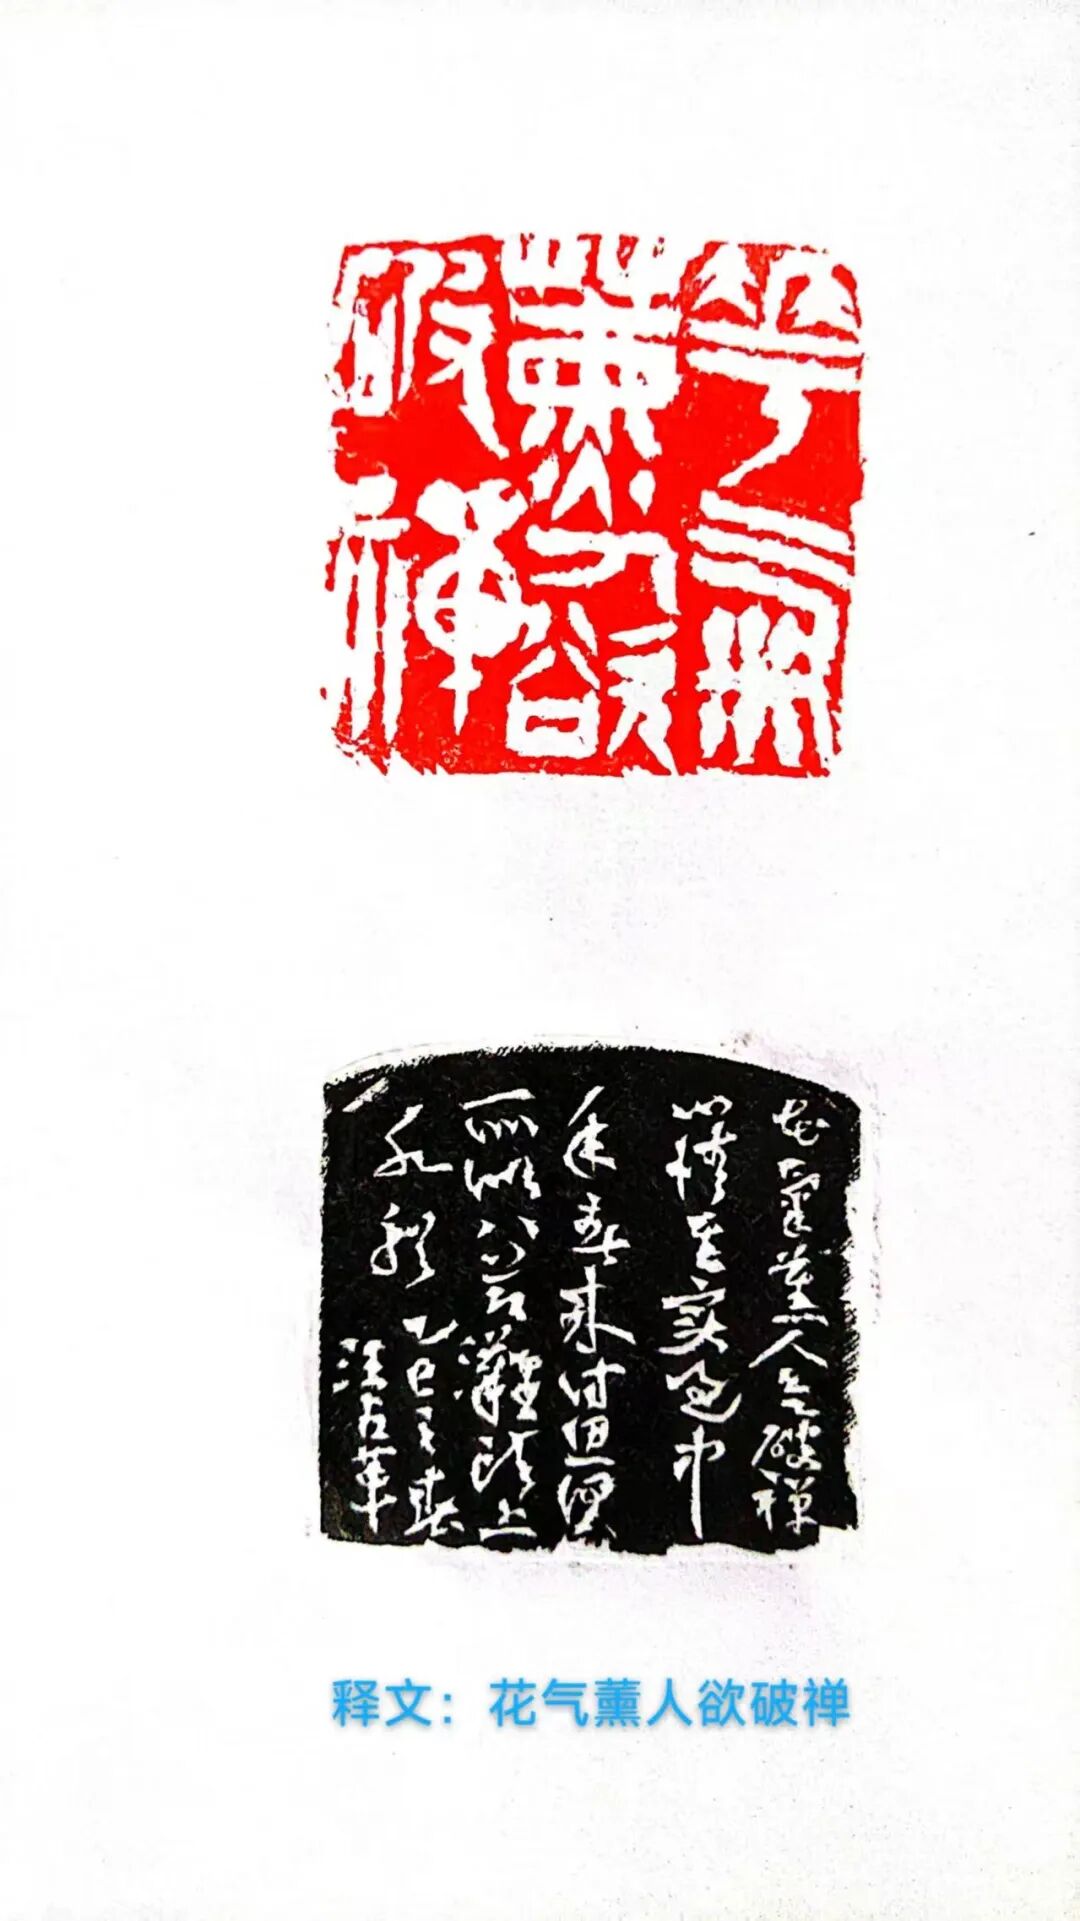 華氣
薰人欲
破禪
花氣薰人欲破禅
心情其实過中
年春来诗思何
所似八节灘头上
水船 乙巳之春
汪占革
释文：花气薰人欲破禅